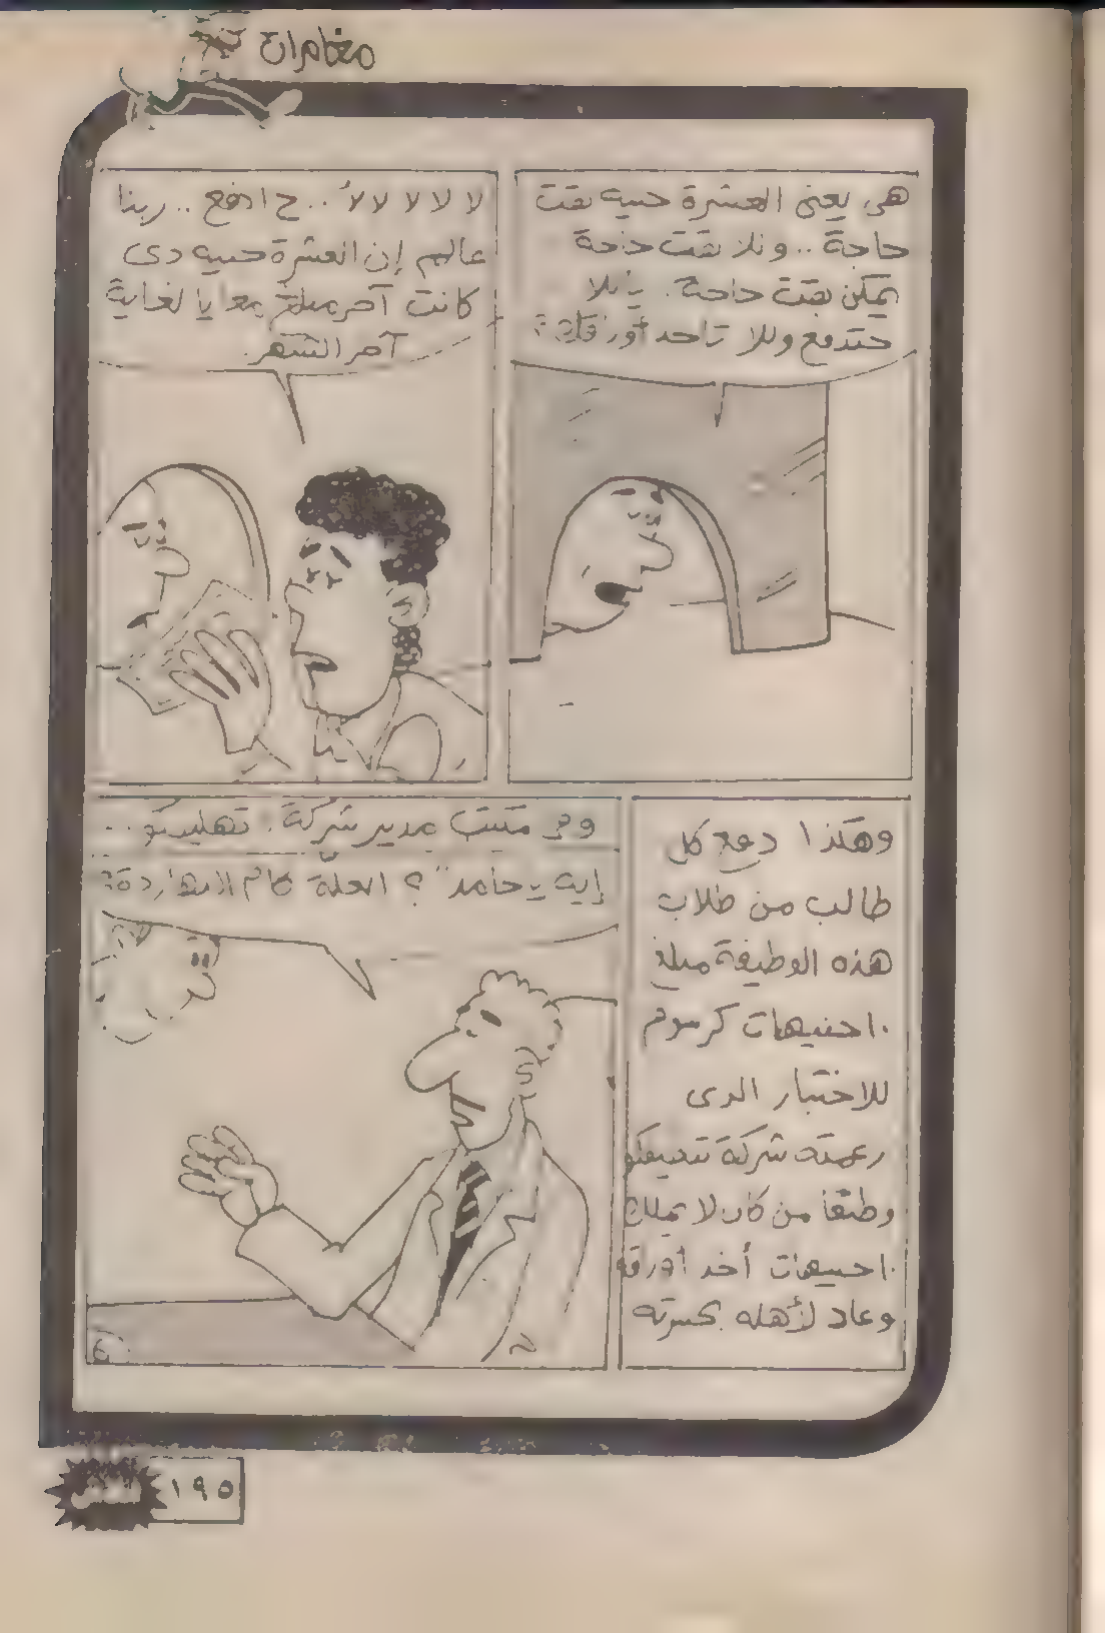 مغامرات
هى يعنى العشرة جنيه بقت
حاجة .. ولا بقت حاجة
يمكن بقت حاجة. يا بلا
حتدفع وللا تاخد أوراقك؟
لا لا لا لا لأ .. ح ادفع .. ربنا
عالم إن العشرة جنيه دى
كانت آخر مبلغ معايا لغاية
آخر الشهر.
وهكذا دفع كل
طالب من طلاب
هذه الوظيفة مبلغ
١٠ جنيهات كرسوم
للاختبار الذى
زعمته شركة
وطبعا من كان لا يملك
١٠ جنيهات أخذ أوراقه
وعاد لأهله بحسرته
وفى مكتب مدير شركة. تهليبكو ..
إيه يا حامد ؟ الغلة كام النهاردة؟
١٩٥